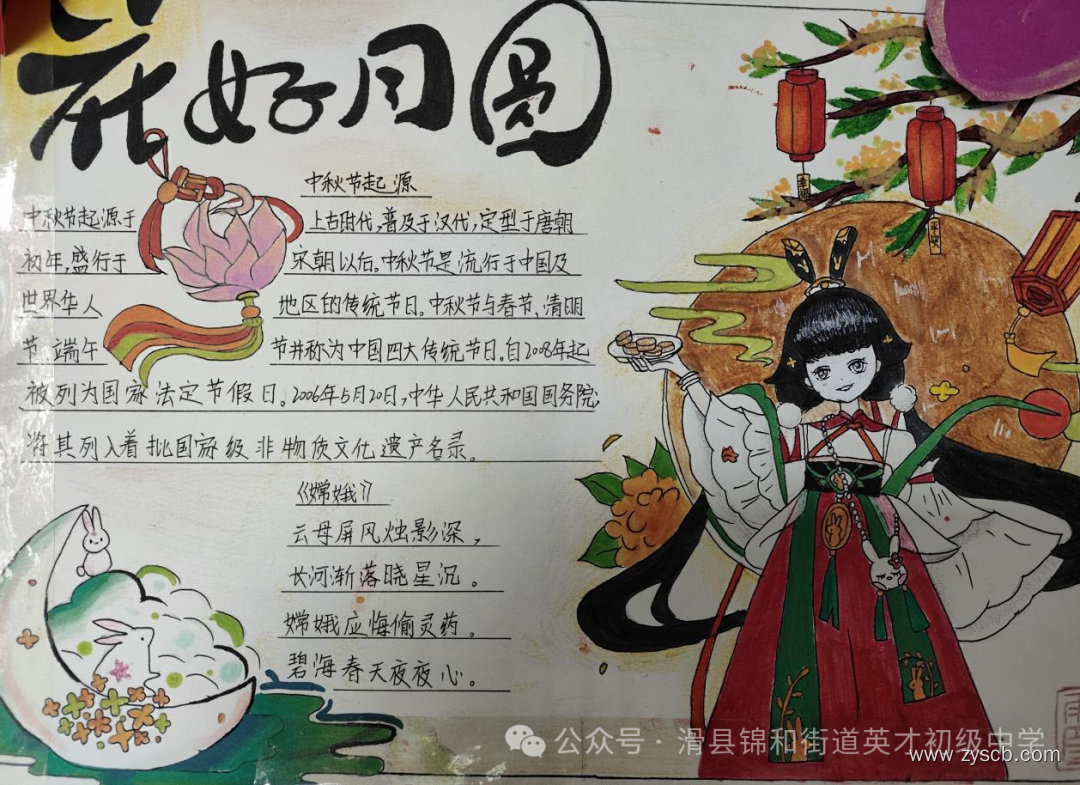 花好月圆
中秋节起源
中秋节起源于上古时代,普及于汉代,定型于唐朝
初年,盛行于宋朝以后。中秋节是流行于中国及
世界华人地区的传统节日。中秋节与春节、清明
节、端午节并称为中国四大传统节日。自2008年起
被列为国家法定节假日。2006年5月20日,中华人民共和国国务院;
将其列入着批国家级非物质文化遗产名录。
《嫦娥》
云母屏风烛影深,
长河渐落晓星沉。
嫦娥应悔偷灵药。
碧海春天夜夜心。
公众号·滑县锦和街道英才初级中学
www.zyscb.com